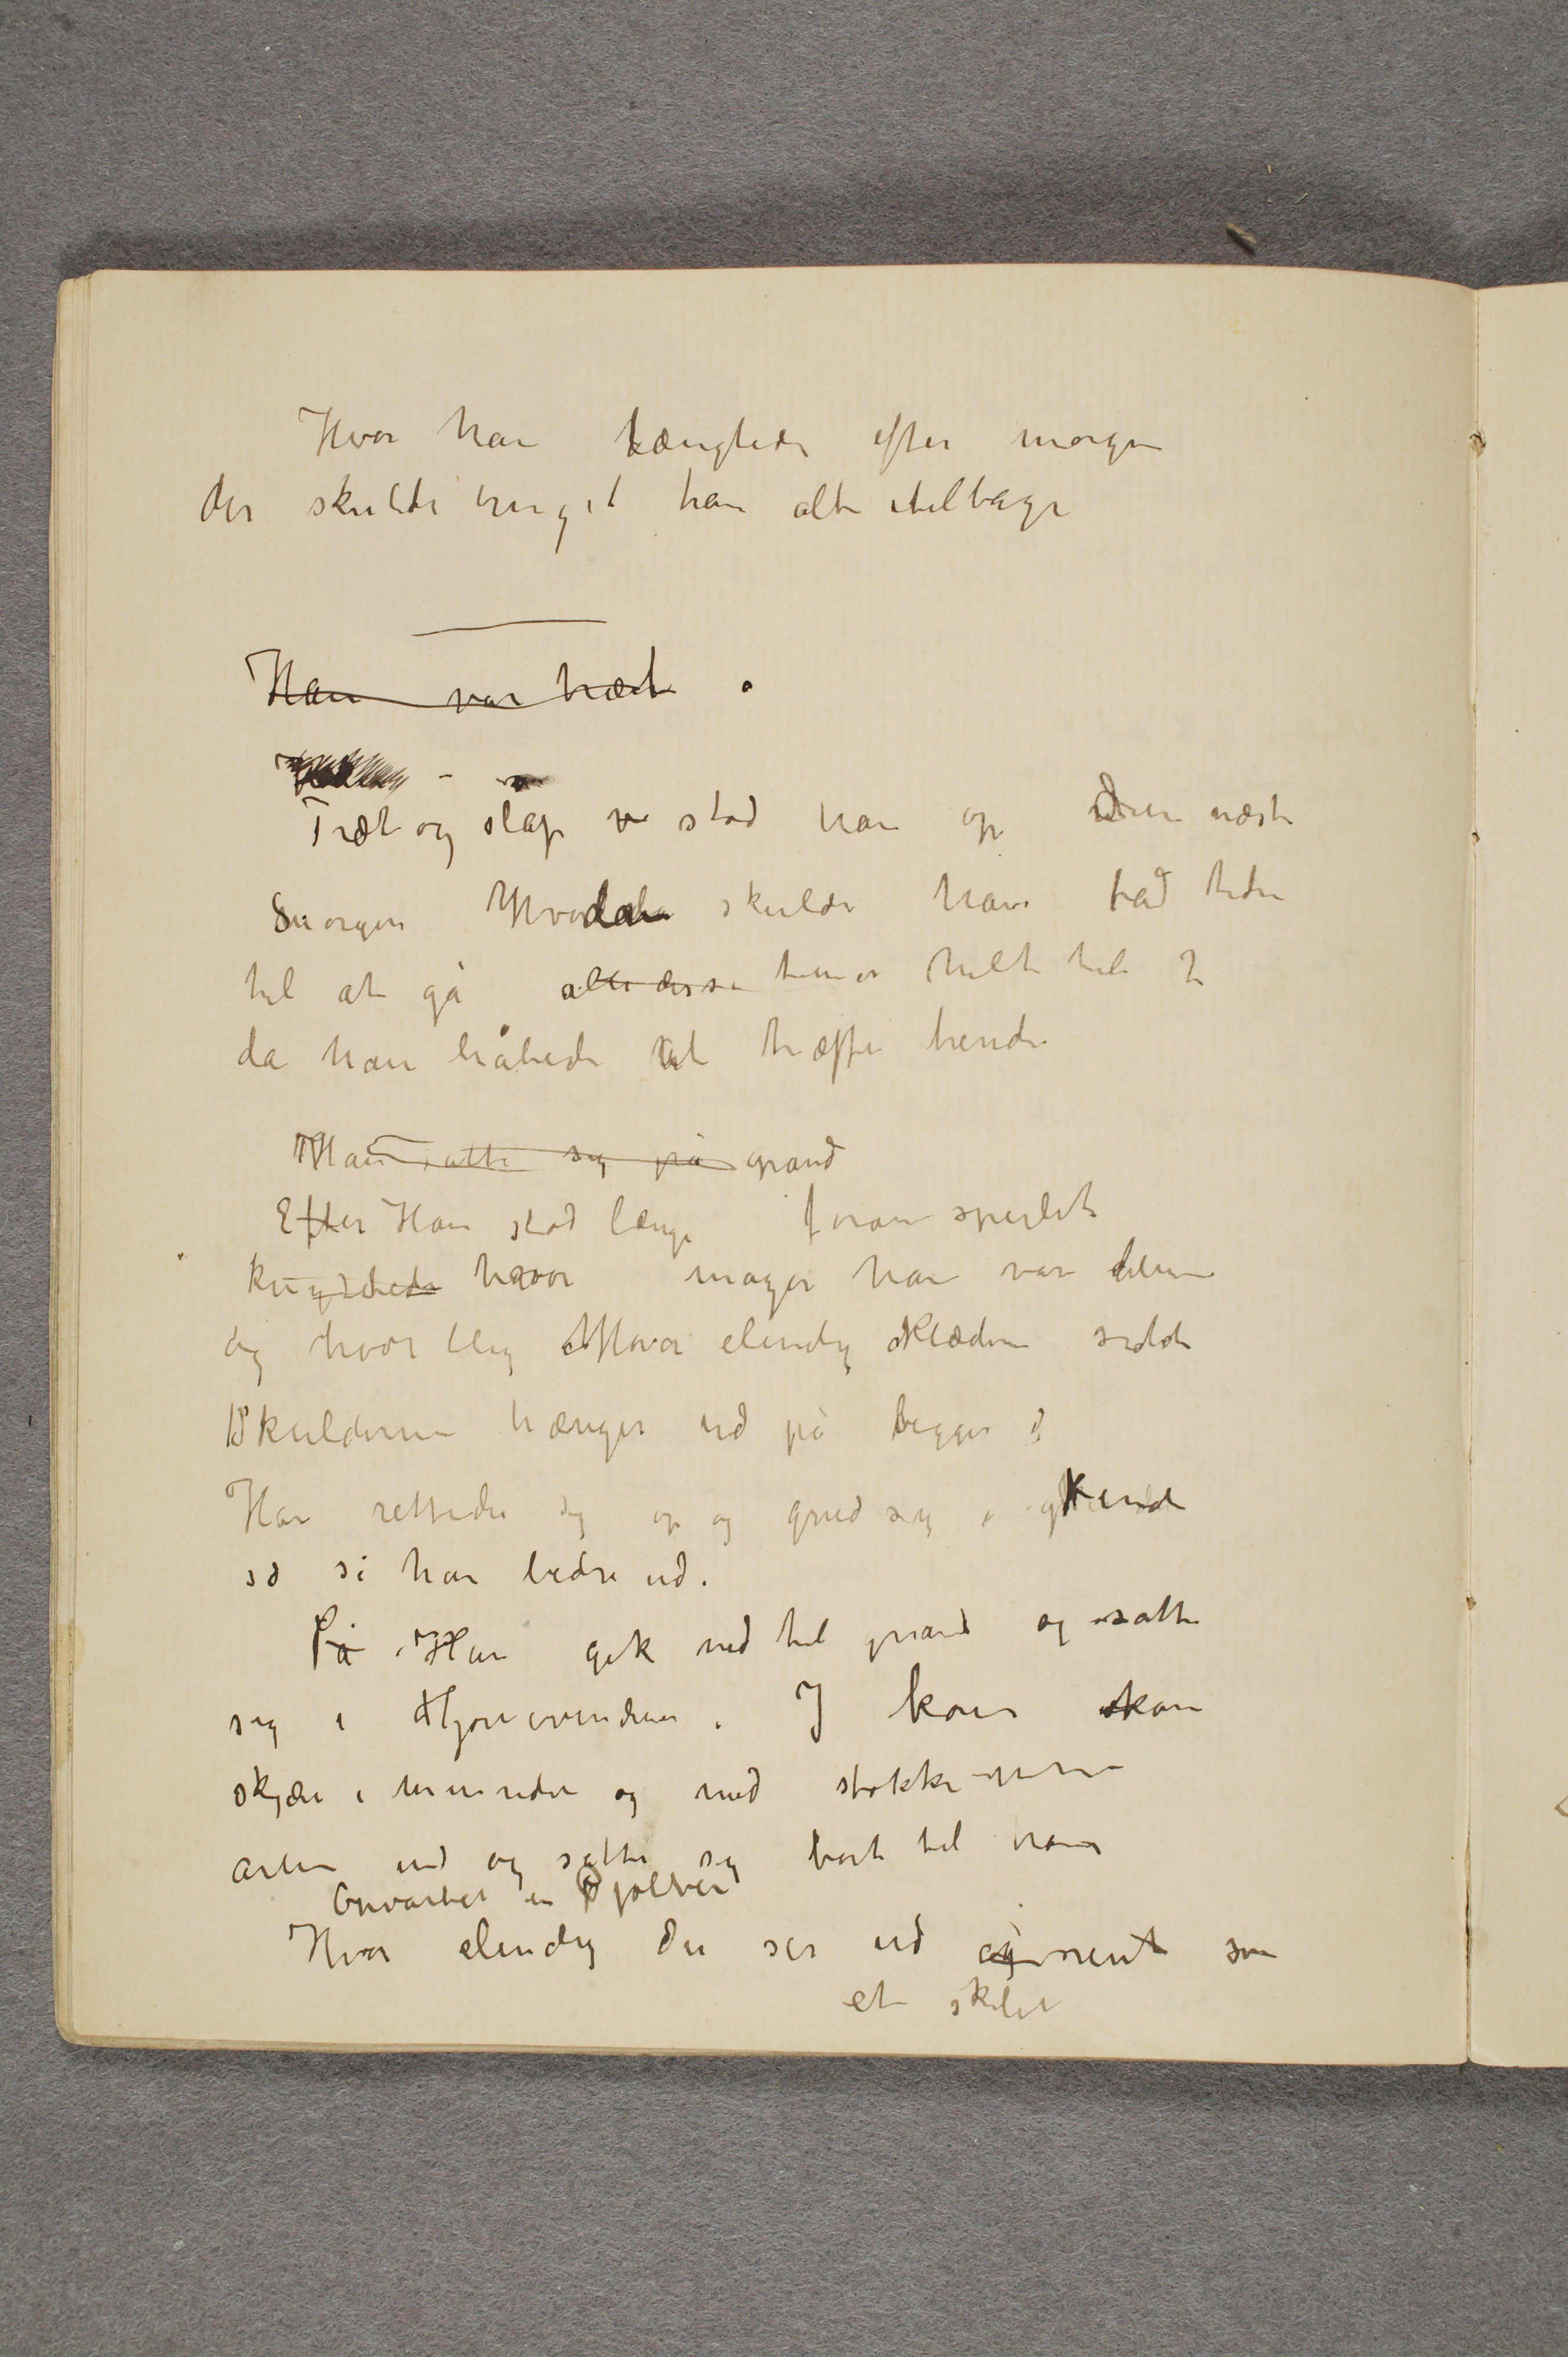 Hvor han længtede efter morgen
der skulde bringe han alt tilbage
Han var træt
Træt og slap stod han op den næste
morgen Hvordan skulde han få tiden
til at gå alle disse timer helt til 2
da han håbede at træffe hende
Han satte sig på grand
Efter Han stod længe foran speilet
hvor mager han var bleven
og hvor bleg Hvor elendig klæderne sidde
Skulderne hænger ud på begge s
Han rettede sig op og gned sig i kinde
så så han bedre ud.
På Han gik ned til grand og satte
sig i Hjørnevinduet. J kom
skjæv i munden og med stokke
armen ud og satte sig bort til ham
Opvarter en pjolter
Hvor elendig du ser ud rent som
et skelet